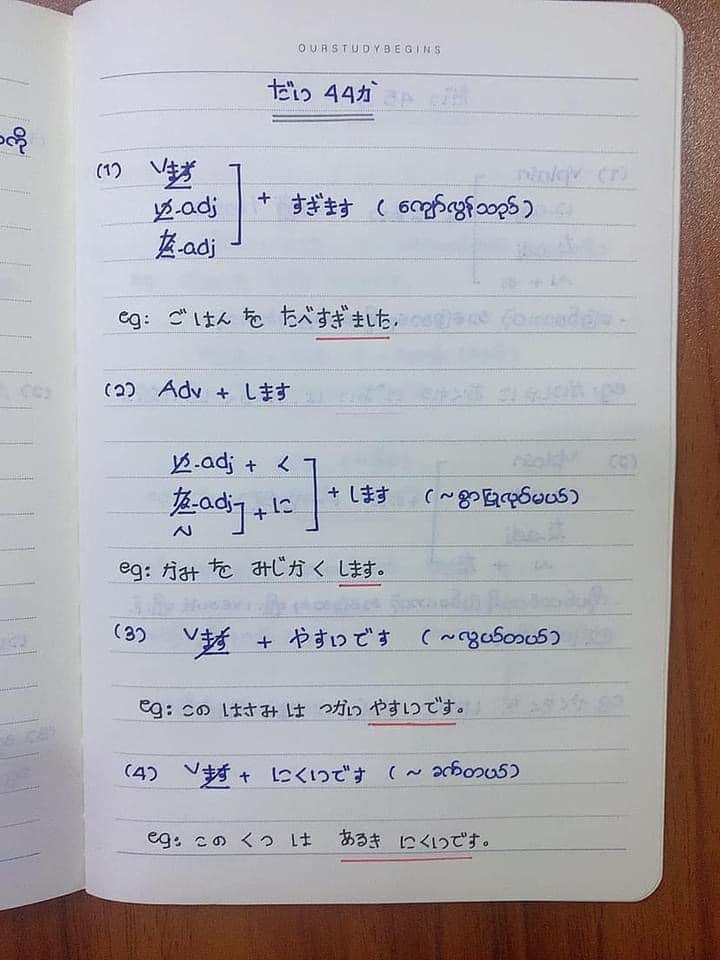 ကို
OURSTUDYBEGINS
だい 44か
(1) Vます
い-adj
な-adj
+ すぎます ( ကျော်လွန်သည် )
eg: ごはん を たべすぎました.
(2) Adv + します
い-adj + く
な-adj
N
+ に
+ します ( ~စွာပြုလုပ်မယ် )
eg: かみ を みじかく します。
(3) Vます + やすいです ( ~လွယ်တယ် )
eg: この はさみ は つかい やすいです。
(4) Vます + にくいです ( ~ ခက်တယ် )
eg: この くつ は あるき にくいです。